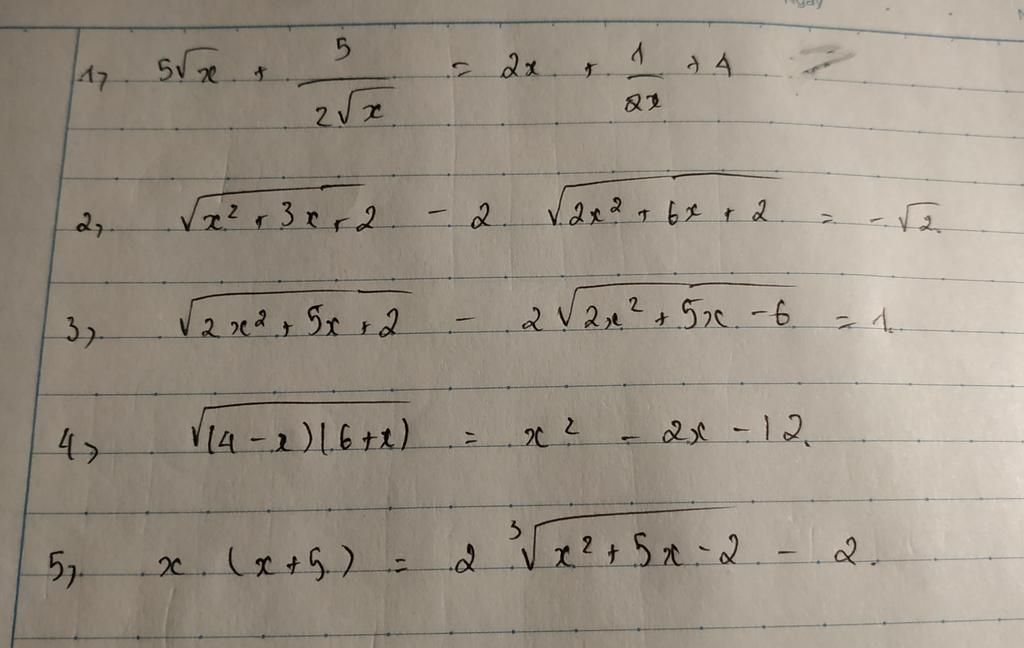 Ngày
1, 5√x + 5/(2√x) = 2x + 1/(2x) + 4
2, √(x² + 3x + 2) - 2 √(2x² + 6x + 2) = -√2.
3, √(2x² + 5x + 2) - 2√(2x² + 5x - 6) = 1.
4, √((4 - x)(6 + x)) = x² - 2x - 12.
5, x (x + 5) = 2 ∛(x² + 5x - 2) - 2.